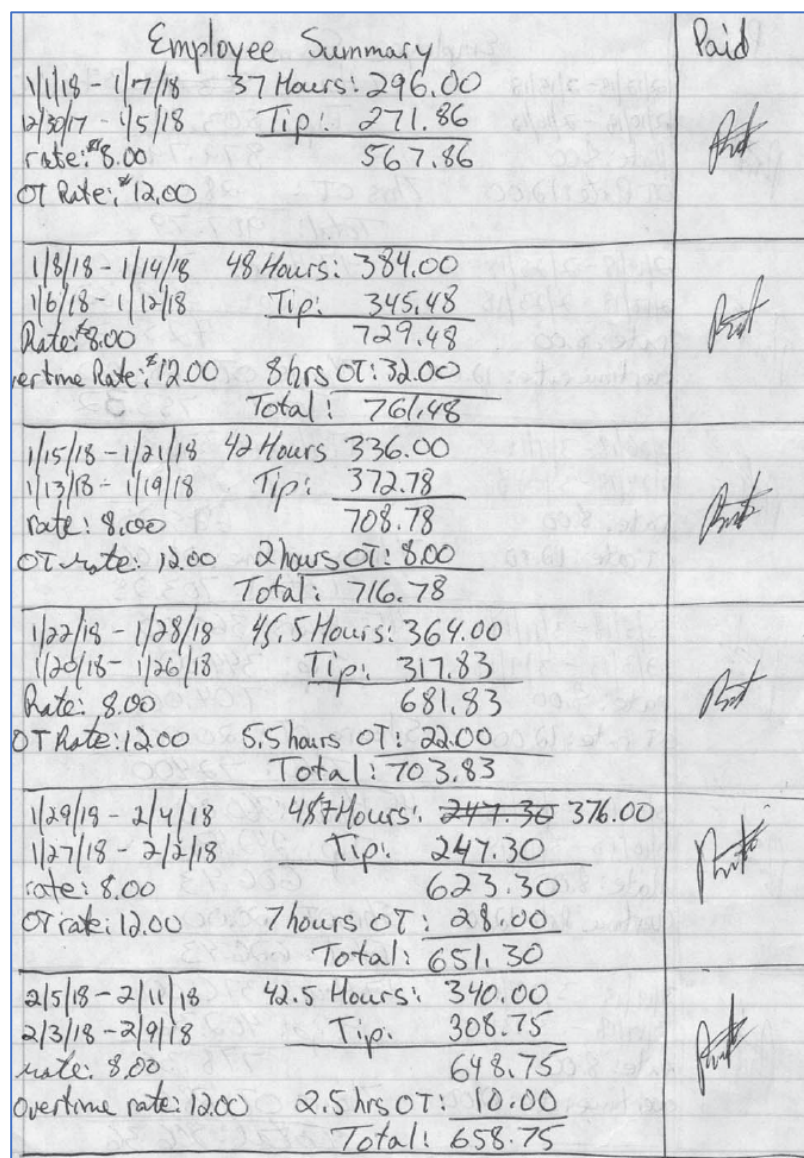 Employee Summary Paid
1/1/18 - 1/7/18 37 Hours: 296.00
12/30/17 - 1/5/18 Tip: 271.86
rate: $8.00 567.86
OT Rate: $12.00
1/8/18 - 1/14/18 48 Hours: 384.00
1/6/18 - 1/12/18 Tip: 345.48
Rate: $8.00 729.48
ertime Rate: $12.00 8 hrs OT: 32.00
Total: 761.48
1/15/18 - 1/21/18 42 Hours 336.00
1/13/18 - 1/19/18 Tip: 372.78
rate: 8.00 708.78
OT rate: 12.00 2 hours OT: 8.00
Total: 716.78
1/22/18 - 1/28/18 45.5 Hours: 364.00
1/20/18 - 1/26/18 Tip: 317.83
Rate: 8.00 681.83
OT Rate: 12.00 5.5 hours OT: 22.00
Total: 703.83
1/29/18 - 2/4/18 Hours: 247.30 376.00
1/27/18 - 2/2/18 Tip: 247.30
rate: 8.00 623.30
OT rate: 12.00 7 hours OT: 28.00
Total: 651.30
2/5/18 - 2/11/18 42.5 Hours: 340.00
2/3/18 - 2/9/18 Tip: 308.75
rate: 8.00 648.75
overtime rate: 12.00 2.5 hrs OT: 10.00
Total: 658.75